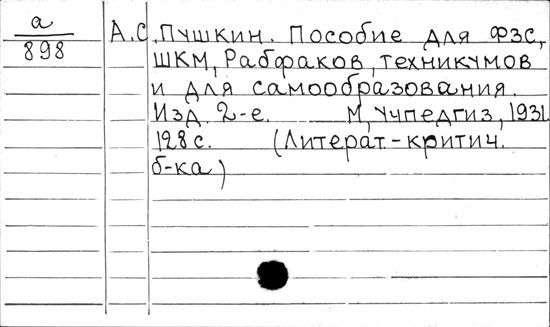 а
898
А.С. Пушкин. Пособие для ФЗС,
ШКМ, Рабфаков, техникумов
и для самообразования.
Изд. 2-е. М, Учпедгиз, 1931.
128 с. (Литерат.-критич.
б-ка)